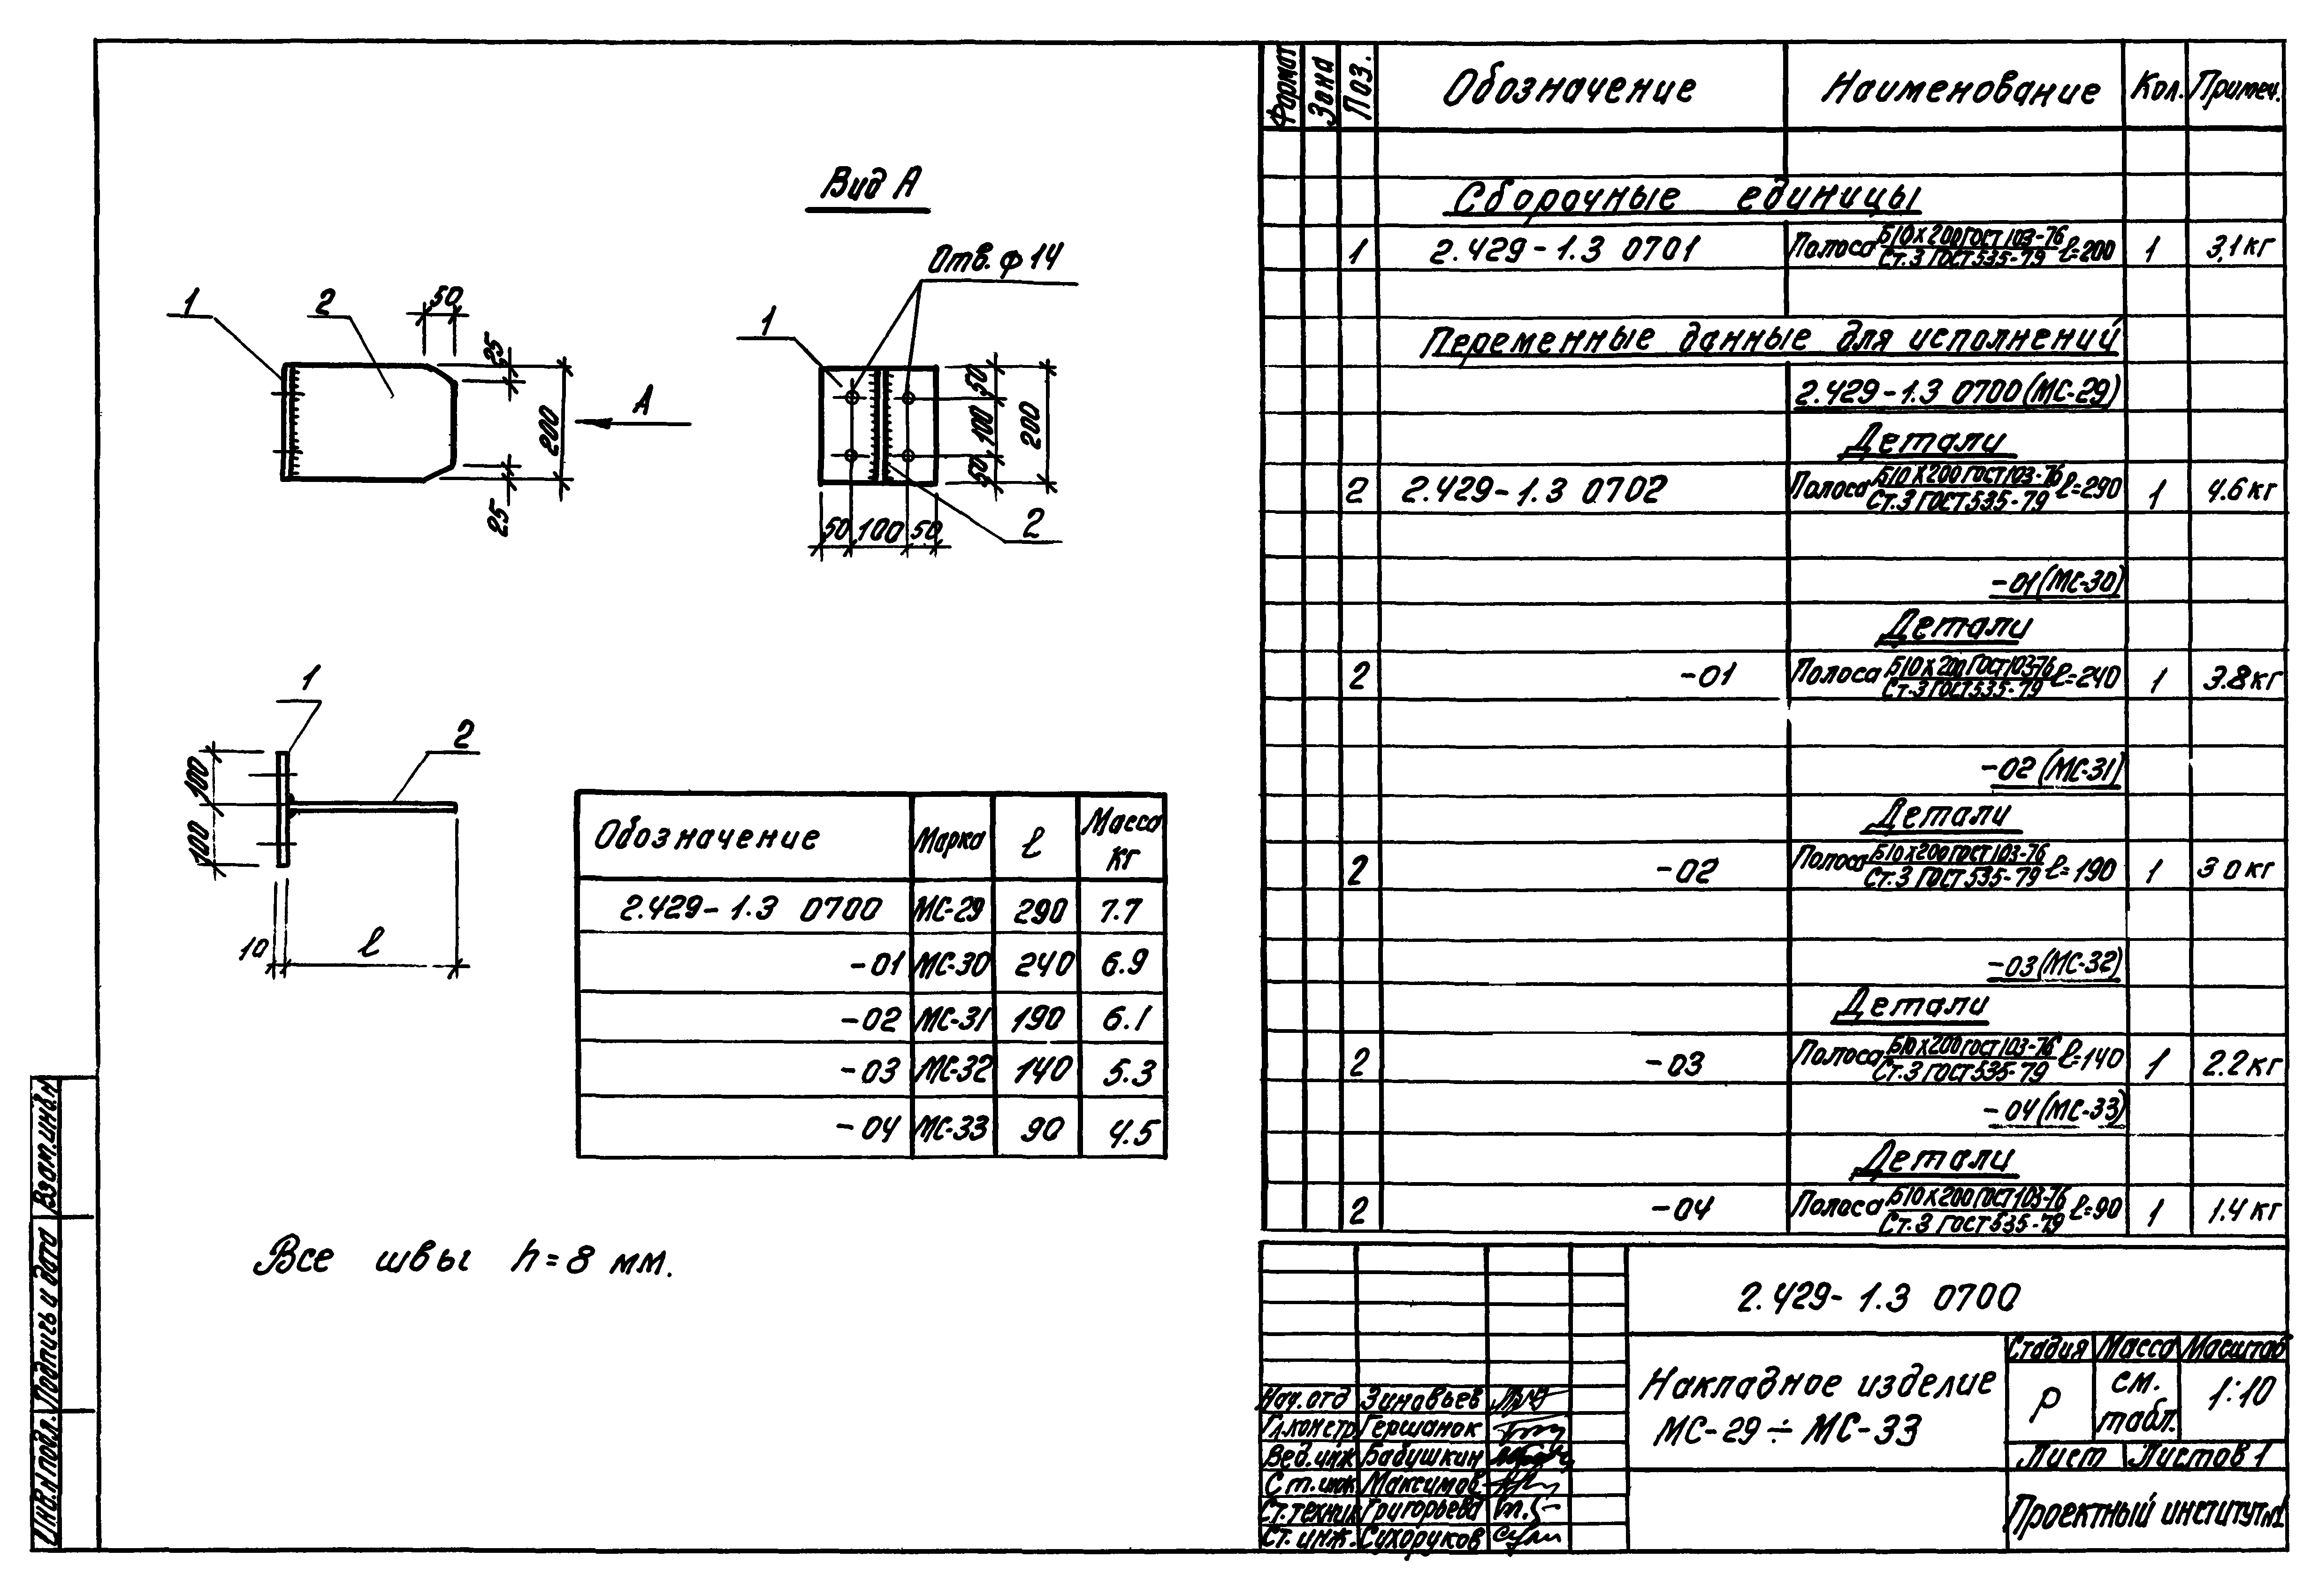 Вид А
Отв. ф 14
1
2
50
25
200
25
А
1
50
100
50
200
50
100
50
2
1
2
100
100
10
ℓ
Обозначение Марка ℓ Масса кг
2.429-1.3 0700 МС-29 290 7.7
-01 МС-30 240 6.9
-02 МС-31 190 6.1
-03 МС-32 140 5.3
-04 МС-33 90 4.5
Все швы h=8 мм.
Формат Зона Поз. Обозначение Наименование Кол. Примеч.
Сборочные единицы
1 2.429-1.3 0701 Полоса Б10х200 ГОСТ 103-76 / Ст.3 ГОСТ 535-79 ℓ=200 1 3,1 кг
Переменные данные для исполнений
2.429-1.3 0700 (МС-29)
Детали
2 2.429-1.3 0702 Полоса Б10х200 ГОСТ 103-76 / Ст.3 ГОСТ 535-79 ℓ=290 1 4.6 кг
-01 (МС-30)
Детали
2 -01 Полоса Б10х200 ГОСТ 103-76 / Ст.3 ГОСТ 535-79 ℓ=240 1 3.8 кг
-02 (МС-31)
Детали
2 -02 Полоса Б10х200 ГОСТ 103-76 / Ст.3 ГОСТ 535-79 ℓ=190 1 3 0 кг
-03 (МС-32)
Детали
2 -03 Полоса Б10х200 ГОСТ 103-76 / Ст.3 ГОСТ 535-79 ℓ=140 1 2.2 кг
-04 (МС-33)
Детали
2 -04 Полоса Б10х200 ГОСТ 103-76 / Ст.3 ГОСТ 535-79 ℓ=90 1 1.4 кг
2.429-1.3 0700
Накладное изделие
МС-29÷МС-33
Стадия Масса Масштаб
Р см. табл. 1:10
Лист Листов 1
Проектный институт №1
Нач.отд Зиновьев
Гл.констр Гершанок
Вед.инж Бабушкин
Ст.инж Максимов
Ст.техник Григорьева
Ст.инж. Сухоруков
Взам.инв.н
Подпись и дата
Инв.N подл.